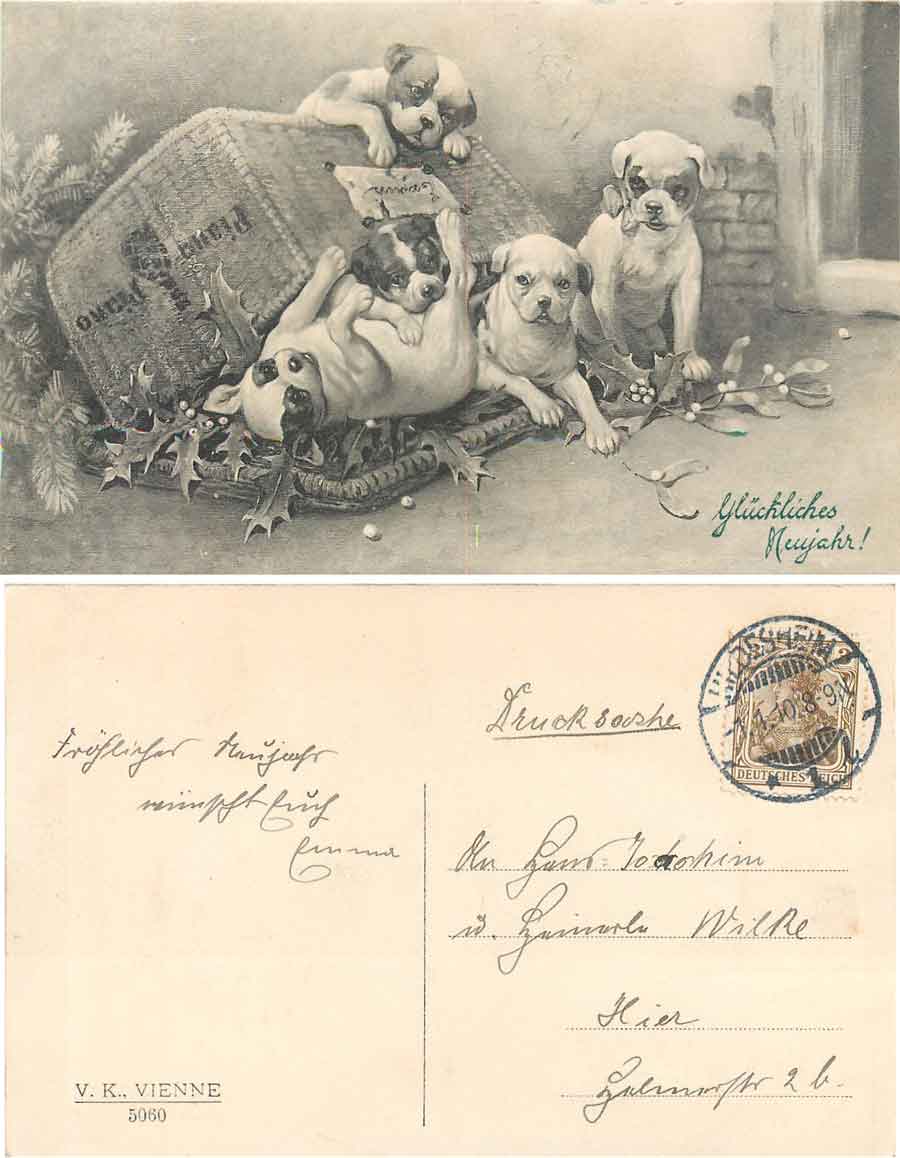 Glückliches
Neujahr!
Drucksache
HILDESHEIM
1.10.8-9V.
DEUTSCHES REICH
Fröhliches Neujahr
wünscht Euch
Emma
An Hans-Joachim
u. Heinerle Wilke
Hier
2 b.
V. K., VIENNE
5060